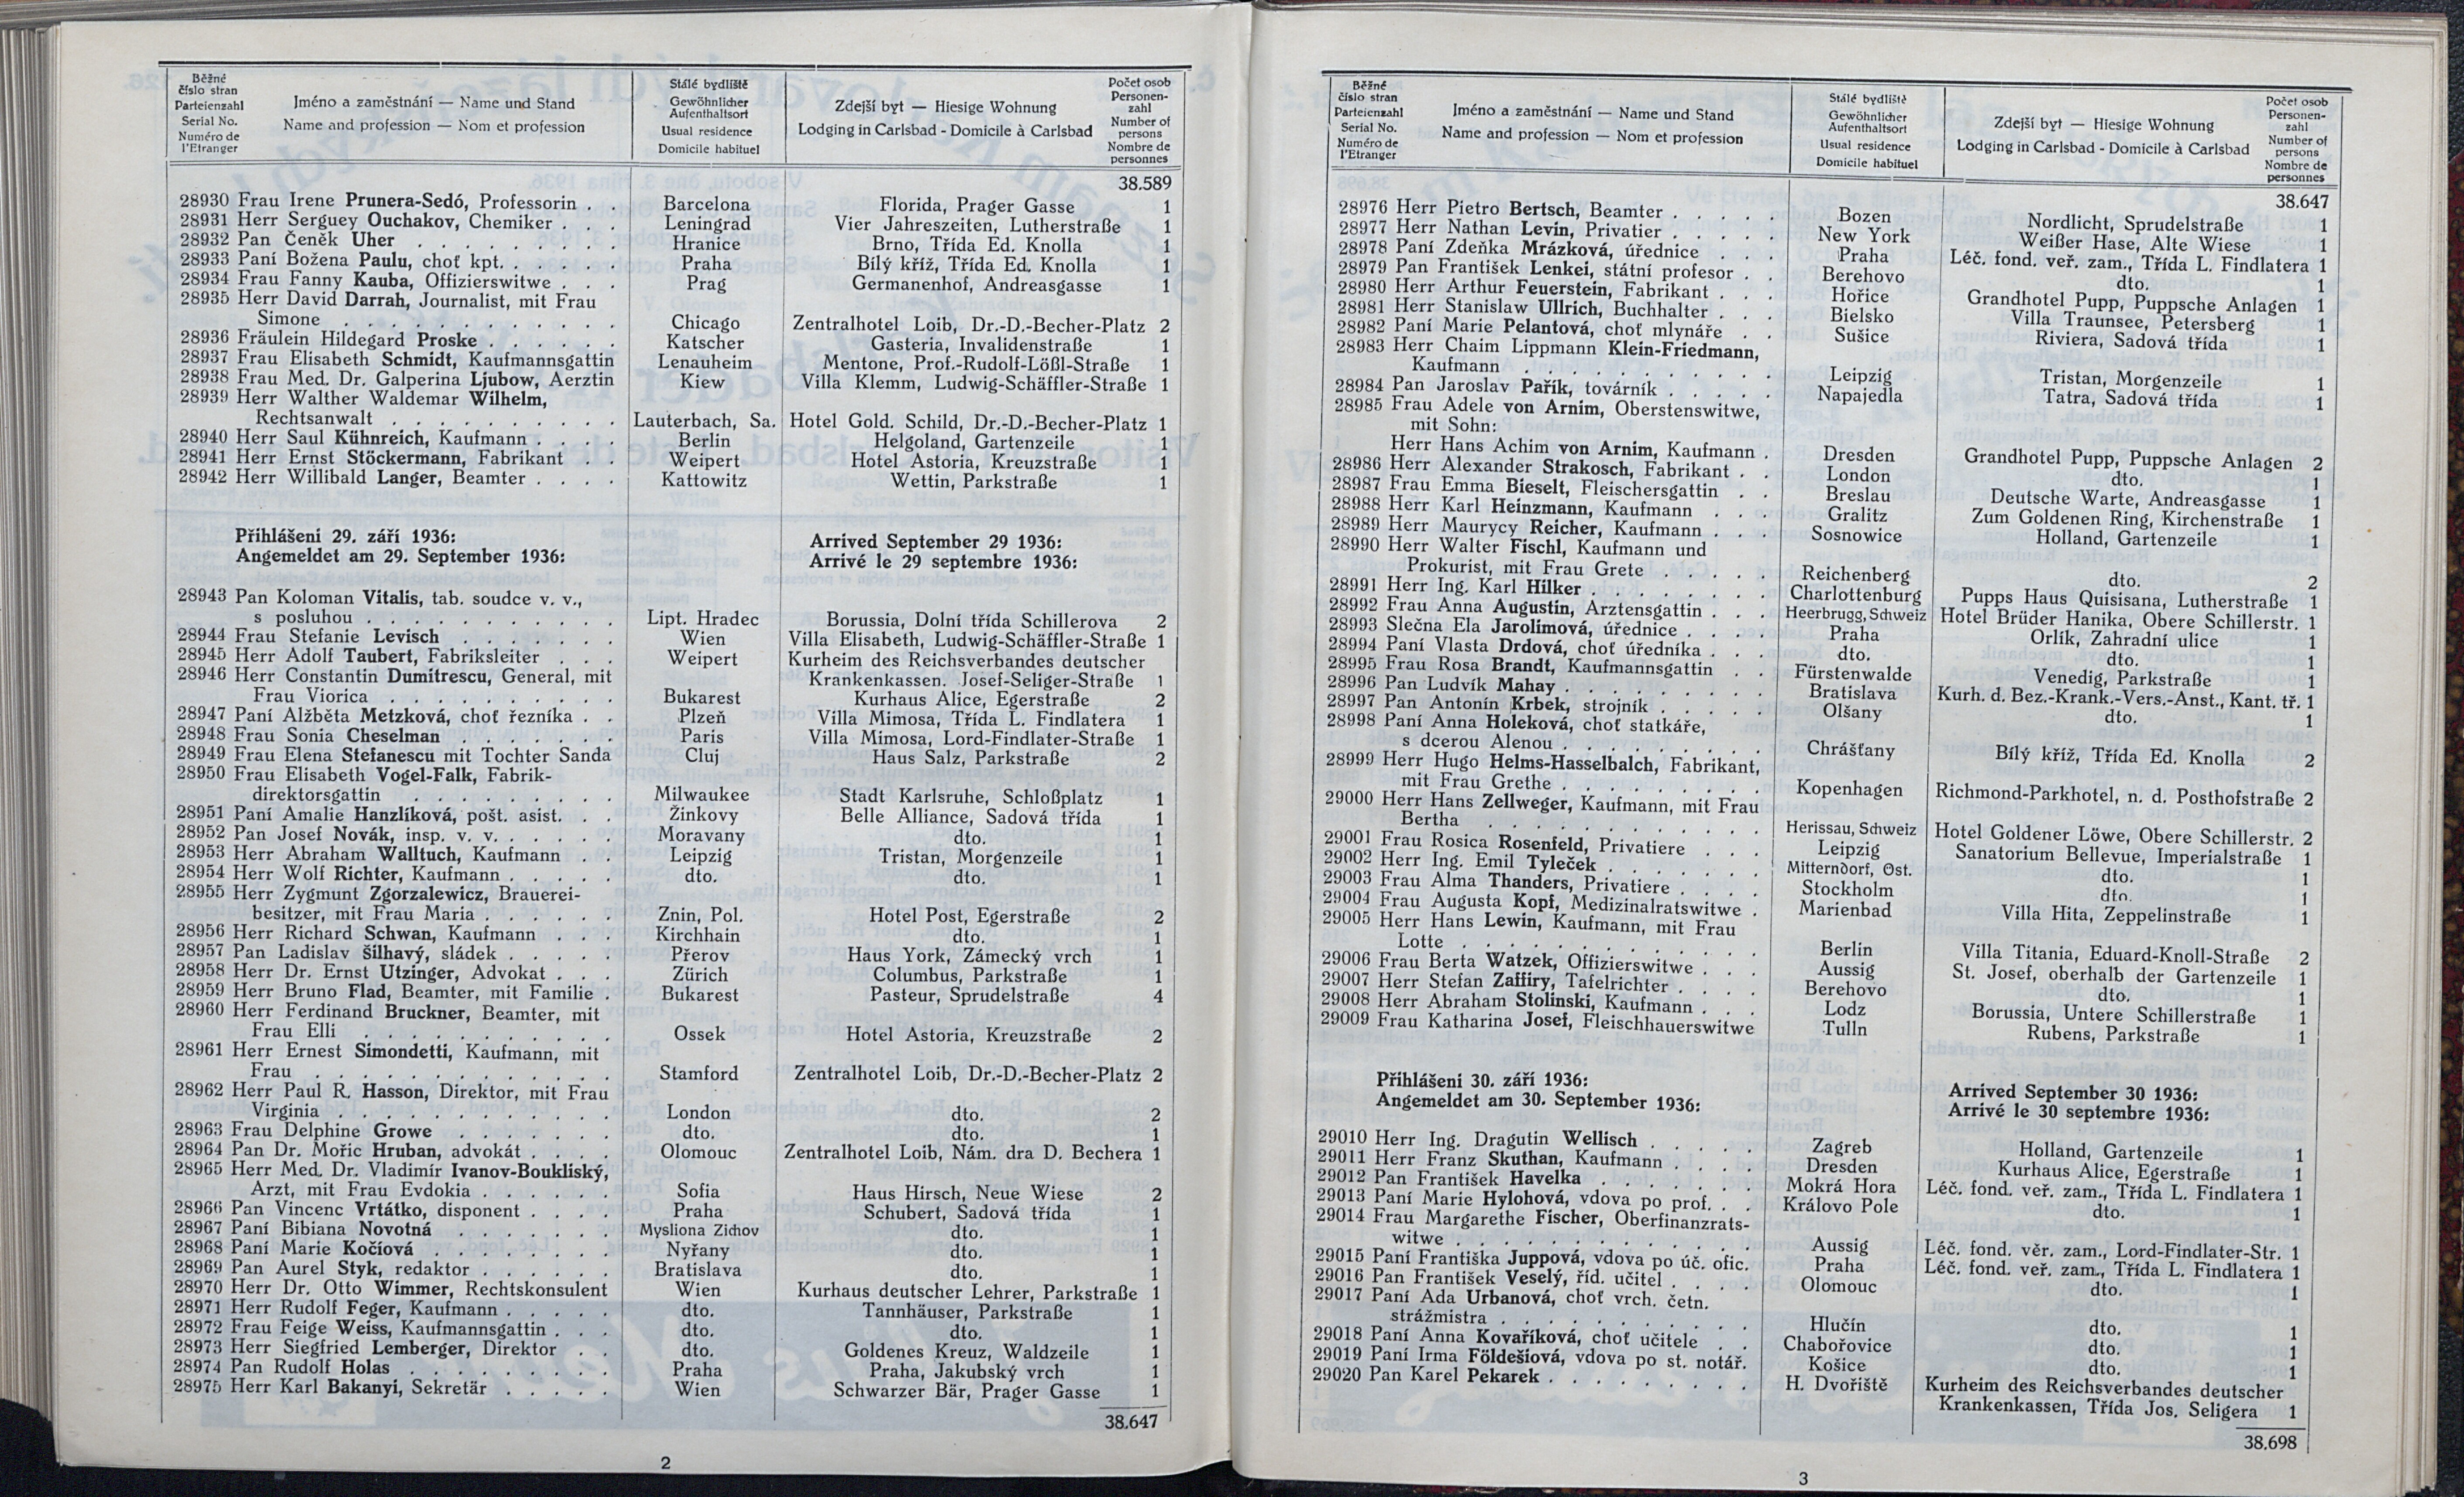 Běžné číslo stran Parteienzahl Serial No. Numéro de l'Etranger
Jméno a zaměstnání — Name und Stand
Name and profession — Nom et profession
Stálé bydliště Gewöhnlicher Aufenthaltsort Usual residence Domicile habituel
Zdejší byt — Hiesige Wohnung
Lodging in Carlsbad - Domicile à Carlsbad
Počet osob Personen-zahl Number of persons Nombre de personnes
38.589
28930 Frau Irene Prunera-Sedó, Professorin . . Barcelona Florida, Prager Gasse 1
28931 Herr Serguey Ouchakov, Chemiker . . . Leningrad Vier Jahreszeiten, Lutherstraße 1
28932 Pan Čeněk Uher . . . . . . . . . Hranice Brno, Třída Ed. Knolla 1
28933 Paní Božena Paulu, choť kpt. . . . . . Praha Bílý kříž, Třída Ed. Knolla 1
28934 Frau Fanny Kauba, Offizierswitwe . . . Prag Germanenhof, Andreasgasse 1
28935 Herr David Darrah, Journalist, mit Frau
Simone . . . . . . . . . . . Chicago Zentralhotel Loib, Dr.-D.-Becher-Platz 2
28936 Fräulein Hildegard Proske . . . . . . Katscher Gasteria, Invalidenstraße 1
28937 Frau Elisabeth Schmidt, Kaufmannsgattin Lenauheim Mentone, Prof.-Rudolf-Lößl-Straße 1
28938 Frau Med. Dr. Galperina Ljubow, Aerztin Kiew Villa Klemm, Ludwig-Schäffler-Straße 1
28939 Herr Walther Waldemar Wilhelm,
Rechtsanwalt . . . . . . . . . . Lauterbach, Sa. Hotel Gold. Schild, Dr.-D.-Becher-Platz 1
28940 Herr Saul Kühnreich, Kaufmann . . . . Berlin Helgoland, Gartenzeile 1
28941 Herr Ernst Stöckermann, Fabrikant . . Weipert Hotel Astoria, Kreuzstraße 1
28942 Herr Willibald Langer, Beamter . . . . Kattowitz Wettin, Parkstraße 1
Přihlášeni 29. září 1936: Arrived September 29 1936:
Angemeldet am 29. September 1936: Arrivé le 29 septembre 1936:
28943 Pan Koloman Vitalis, tab. soudce v. v.,
s posluhou . . . . . . . . . . . Lipt. Hradec Borussia, Dolní třída Schillerova 2
28944 Frau Stefanie Levisch . . . . . . . Wien Villa Elisabeth, Ludwig-Schäffler-Straße 1
28945 Herr Adolf Taubert, Fabriksleiter . . . Weipert Kurheim des Reichsverbandes deutscher
28946 Herr Constantin Dumitrescu, General, mit Krankenkassen. Josef-Seliger-Straße 1
Frau Viorica . . . . . . . . . . Bukarest Kurhaus Alice, Egerstraße 2
28947 Paní Alžběta Metzková, choť řezníka . . Plzeň Villa Mimosa, Třída L. Findlatera 1
28948 Frau Sonia Cheselman . . . . . . . Paris Villa Mimosa, Lord-Findlater-Straße 1
28949 Frau Elena Stefanescu mit Tochter Sanda Cluj Haus Salz, Parkstraße 2
28950 Frau Elisabeth Vogel-Falk, Fabrik-
direktorsgattin . . . . . . . . . Milwaukee Stadt Karlsruhe, Schloßplatz 1
28951 Paní Amalie Hanzlíková, pošt. asist. . . Žinkovy Belle Alliance, Sadová třída 1
28952 Pan Josef Novák, insp. v. v. . . . . . Moravany dto. 1
28953 Herr Abraham Walltuch, Kaufmann . . Leipzig Tristan, Morgenzeile 1
28954 Herr Wolf Richter, Kaufmann . . . . . dto. dto. 1
28955 Herr Zygmunt Zgorzalewicz, Brauerei-
besitzer, mit Frau Maria . . . . . . Znin, Pol. Hotel Post, Egerstraße 2
28956 Herr Richard Schwan, Kaufmann . . . Kirchhain dto. 1
28957 Pan Ladislav Šilhavý, sládek . . . . . Přerov Haus York, Zámecký vrch 1
28958 Herr Dr. Ernst Utzinger, Advokat . . . Zürich Columbus, Parkstraße 1
28959 Herr Bruno Flad, Beamter, mit Familie . Bukarest Pasteur, Sprudelstraße 4
28960 Herr Ferdinand Bruckner, Beamter, mit
Frau Elli . . . . . . . . . . . Ossek Hotel Astoria, Kreuzstraße 2
28961 Herr Ernest Simondetti, Kaufmann, mit
Frau . . . . . . . . . . . . . Stamford Zentralhotel Loib, Dr.-D.-Becher-Platz 2
28962 Herr Paul R. Hasson, Direktor, mit Frau
Virginia . . . . . . . . . . . . London dto. 2
28963 Frau Delphine Growe . . . . . . . dto. dto. 1
28964 Pan Dr. Mořic Hruban, advokát . . . . Olomouc Zentralhotel Loib, Nám. dra D. Bechera 1
28965 Herr Med. Dr. Vladimír Ivanov-Boukliský,
Arzt, mit Frau Evdokia . . . . . . Sofia Haus Hirsch, Neue Wiese 2
28966 Pan Vincenc Vrtátko, disponent . . . . Praha Schubert, Sadová třída 1
28967 Paní Bibiana Novotná . . . . . . . Mysliona Zichov dto. 1
28968 Paní Marie Kočíová . . . . . . . . Nyřany dto. 1
28969 Pan Aurel Styk, redaktor . . . . . . Bratislava dto. 1
28970 Herr Dr. Otto Wimmer, Rechtskonsulent Wien Kurhaus deutscher Lehrer, Parkstraße 1
28971 Herr Rudolf Feger, Kaufmann . . . . . dto. Tannhäuser, Parkstraße 1
28972 Frau Feige Weiss, Kaufmannsgattin . . . dto. dto. 1
28973 Herr Siegfried Lemberger, Direktor . . dto. Goldenes Kreuz, Waldzeile 1
28974 Pan Rudolf Holas . . . . . . . . . Praha Praha, Jakubský vrch 1
28975 Herr Karl Bakanyi, Sekretär . . . . . Wien Schwarzer Bär, Prager Gasse 1
38.647
2
Běžné číslo stran Parteienzahl Serial No. Numéro de l'Etranger
Jméno a zaměstnání — Name und Stand
Name and profession — Nom et profession
Stálé bydliště Gewöhnlicher Aufenthaltsort Usual residence Domicile habituel
Zdejší byt — Hiesige Wohnung
Lodging in Carlsbad - Domicile à Carlsbad
Počet osob Personen-zahl Number of persons Nombre de personnes
38.647
28976 Herr Pietro Bertsch, Beamter . . . . . Bozen Nordlicht, Sprudelstraße 1
28977 Herr Nathan Levin, Privatier . . . . . New York Weißer Hase, Alte Wiese 1
28978 Paní Zdeňka Mrázková, úřednice . . . Praha Léč. fond. veř. zam., Třída L. Findlatera 1
28979 Pan František Lenkei, státní profesor . . Berehovo dto. 1
28980 Herr Arthur Feuerstein, Fabrikant . . . Hořice Grandhotel Pupp, Puppsche Anlagen 1
28981 Herr Stanislaw Ullrich, Buchhalter . . . Bielsko Villa Traunsee, Petersberg 1
28982 Paní Marie Pelantová, choť mlynáře . . Sušice Riviera, Sadová třída 1
28983 Herr Chaim Lippmann Klein-Friedmann,
Kaufmann . . . . . . . . . . . Leipzig Tristan, Morgenzeile 1
28984 Pan Jaroslav Pařík, továrník . . . . . Napajedla Tatra, Sadová třída 1
28985 Frau Adele von Arnim, Oberstenswitwe,
mit Sohn:
Herr Hans Achim von Arnim, Kaufmann . Dresden Grandhotel Pupp, Puppsche Anlagen 2
28986 Herr Alexander Strakosch, Fabrikant . London dto. 1
28987 Frau Emma Bieselt, Fleischersgattin . . Breslau Deutsche Warte, Andreasgasse 1
28988 Herr Karl Heinzmann, Kaufmann . . . Gralitz Zum Goldenen Ring, Kirchenstraße 1
28989 Herr Maurycy Reicher, Kaufmann . . . Sosnowice Holland, Gartenzeile 1
28990 Herr Walter Fischl, Kaufmann und
Prokurist, mit Frau Grete . . . . . Reichenberg dto. 2
28991 Herr Ing. Karl Hilker . . . . . . . . Charlottenburg Pupps Haus Quisisana, Lutherstraße 1
28992 Frau Anna Augustin, Arztensgattin . . . Heerbrugg, Schweiz Hotel Brüder Hanika, Obere Schillerstr. 1
28993 Slečna Ela Jarolímová, úřednice . . . . Praha Orlík, Zahradní ulice 1
28994 Paní Vlasta Drdová, choť úředníka . . . dto. dto. 1
28995 Frau Rosa Brandt, Kaufmannsgattin . . Fürstenwalde Venedig, Parkstraße 1
28996 Pan Ludvík Mahay . . . . . . . . . Bratislava Kurh. d. Bez.-Krank.-Vers.-Anst., Kant. tř. 1
28997 Pan Antonín Krbek, strojník . . . . . Olšany dto. 1
28998 Paní Anna Holeková, choť statkáře,
s dcerou Alenou . . . . . . . . . Chrášťany Bílý kříž, Třída Ed. Knolla 2
28999 Herr Hugo Helms-Hasselbalch, Fabrikant,
mit Frau Grethe . . . . . . . . . Kopenhagen Richmond-Parkhotel, n. d. Posthofstraße 2
29000 Herr Hans Zellweger, Kaufmann, mit Frau
Bertha . . . . . . . . . . . . Herissau, Schweiz Hotel Goldener Löwe, Obere Schillerstr. 2
29001 Frau Rosica Rosenfeld, Privatiere . . . Leipzig Sanatorium Bellevue, Imperialstraße 1
29002 Herr Ing. Emil Tyleček . . . . . . . Mitterndorf, Öst. dto. 1
29003 Frau Alma Thanders, Privatiere . . . . Stockholm dto. 1
29004 Frau Augusta Kopf, Medizinalratswitwe . Marienbad Villa Hita, Zeppelinstraße 1
29005 Herr Hans Lewin, Kaufmann, mit Frau
Lotte . . . . . . . . . . . . . Berlin Villa Titania, Eduard-Knoll-Straße 2
29006 Frau Berta Watzek, Offizierswitwe . . . Aussig St. Josef, oberhalb der Gartenzeile 1
29007 Herr Stefan Zaffiry, Tafelrichter . . . . Berehovo dto. 1
29008 Herr Abraham Stolinski, Kaufmann . . . Lodz Borussia, Untere Schillerstraße 1
29009 Frau Katharina Josef, Fleischhauerswitwe Tulln Rubens, Parkstraße 1
Přihlášeni 30. září 1936: Arrived September 30 1936:
Angemeldet am 30. September 1936: Arrivé le 30 septembre 1936:
29010 Herr Ing. Dragutin Wellisch . . . . . Zagreb Holland, Gartenzeile 1
29011 Herr Franz Skuthan, Kaufmann . . . . Dresden Kurhaus Alice, Egerstraße 1
29012 Pan František Havelka . . . . . . . Mokrá Hora Léč. fond. veř. zam., Třída L. Findlatera 1
29013 Paní Marie Hylohová, vdova po prof. . . Královo Pole dto. 1
29014 Frau Margarethe Fischer, Oberfinanzrats-
witwe . . . . . . . . . . . . . Aussig Léč. fond. věr. zam., Lord-Findlater-Str. 1
29015 Paní Františka Juppová, vdova po úč. ofic. Praha Léč. fond. veř. zam., Třída L. Findlatera 1
29016 Pan František Veselý, říd. učitel . . . . Olomouc dto. 1
29017 Paní Ada Urbanová, choť vrch. četn.
strážmistra . . . . . . . . . . . Hlučín dto. 1
29018 Paní Anna Kovaříková, choť učitele . . Chabořovice dto. 1
29019 Paní Irma Földešiová, vdova po st. notář. Košice dto. 1
29020 Pan Karel Pekarek . . . . . . . . . H. Dvořiště Kurheim des Reichsverbandes deutscher
Krankenkassen, Třída Jos. Seligera 1
38.698
3